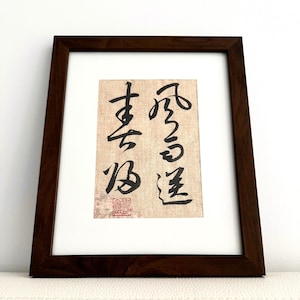 風雨送
春歸